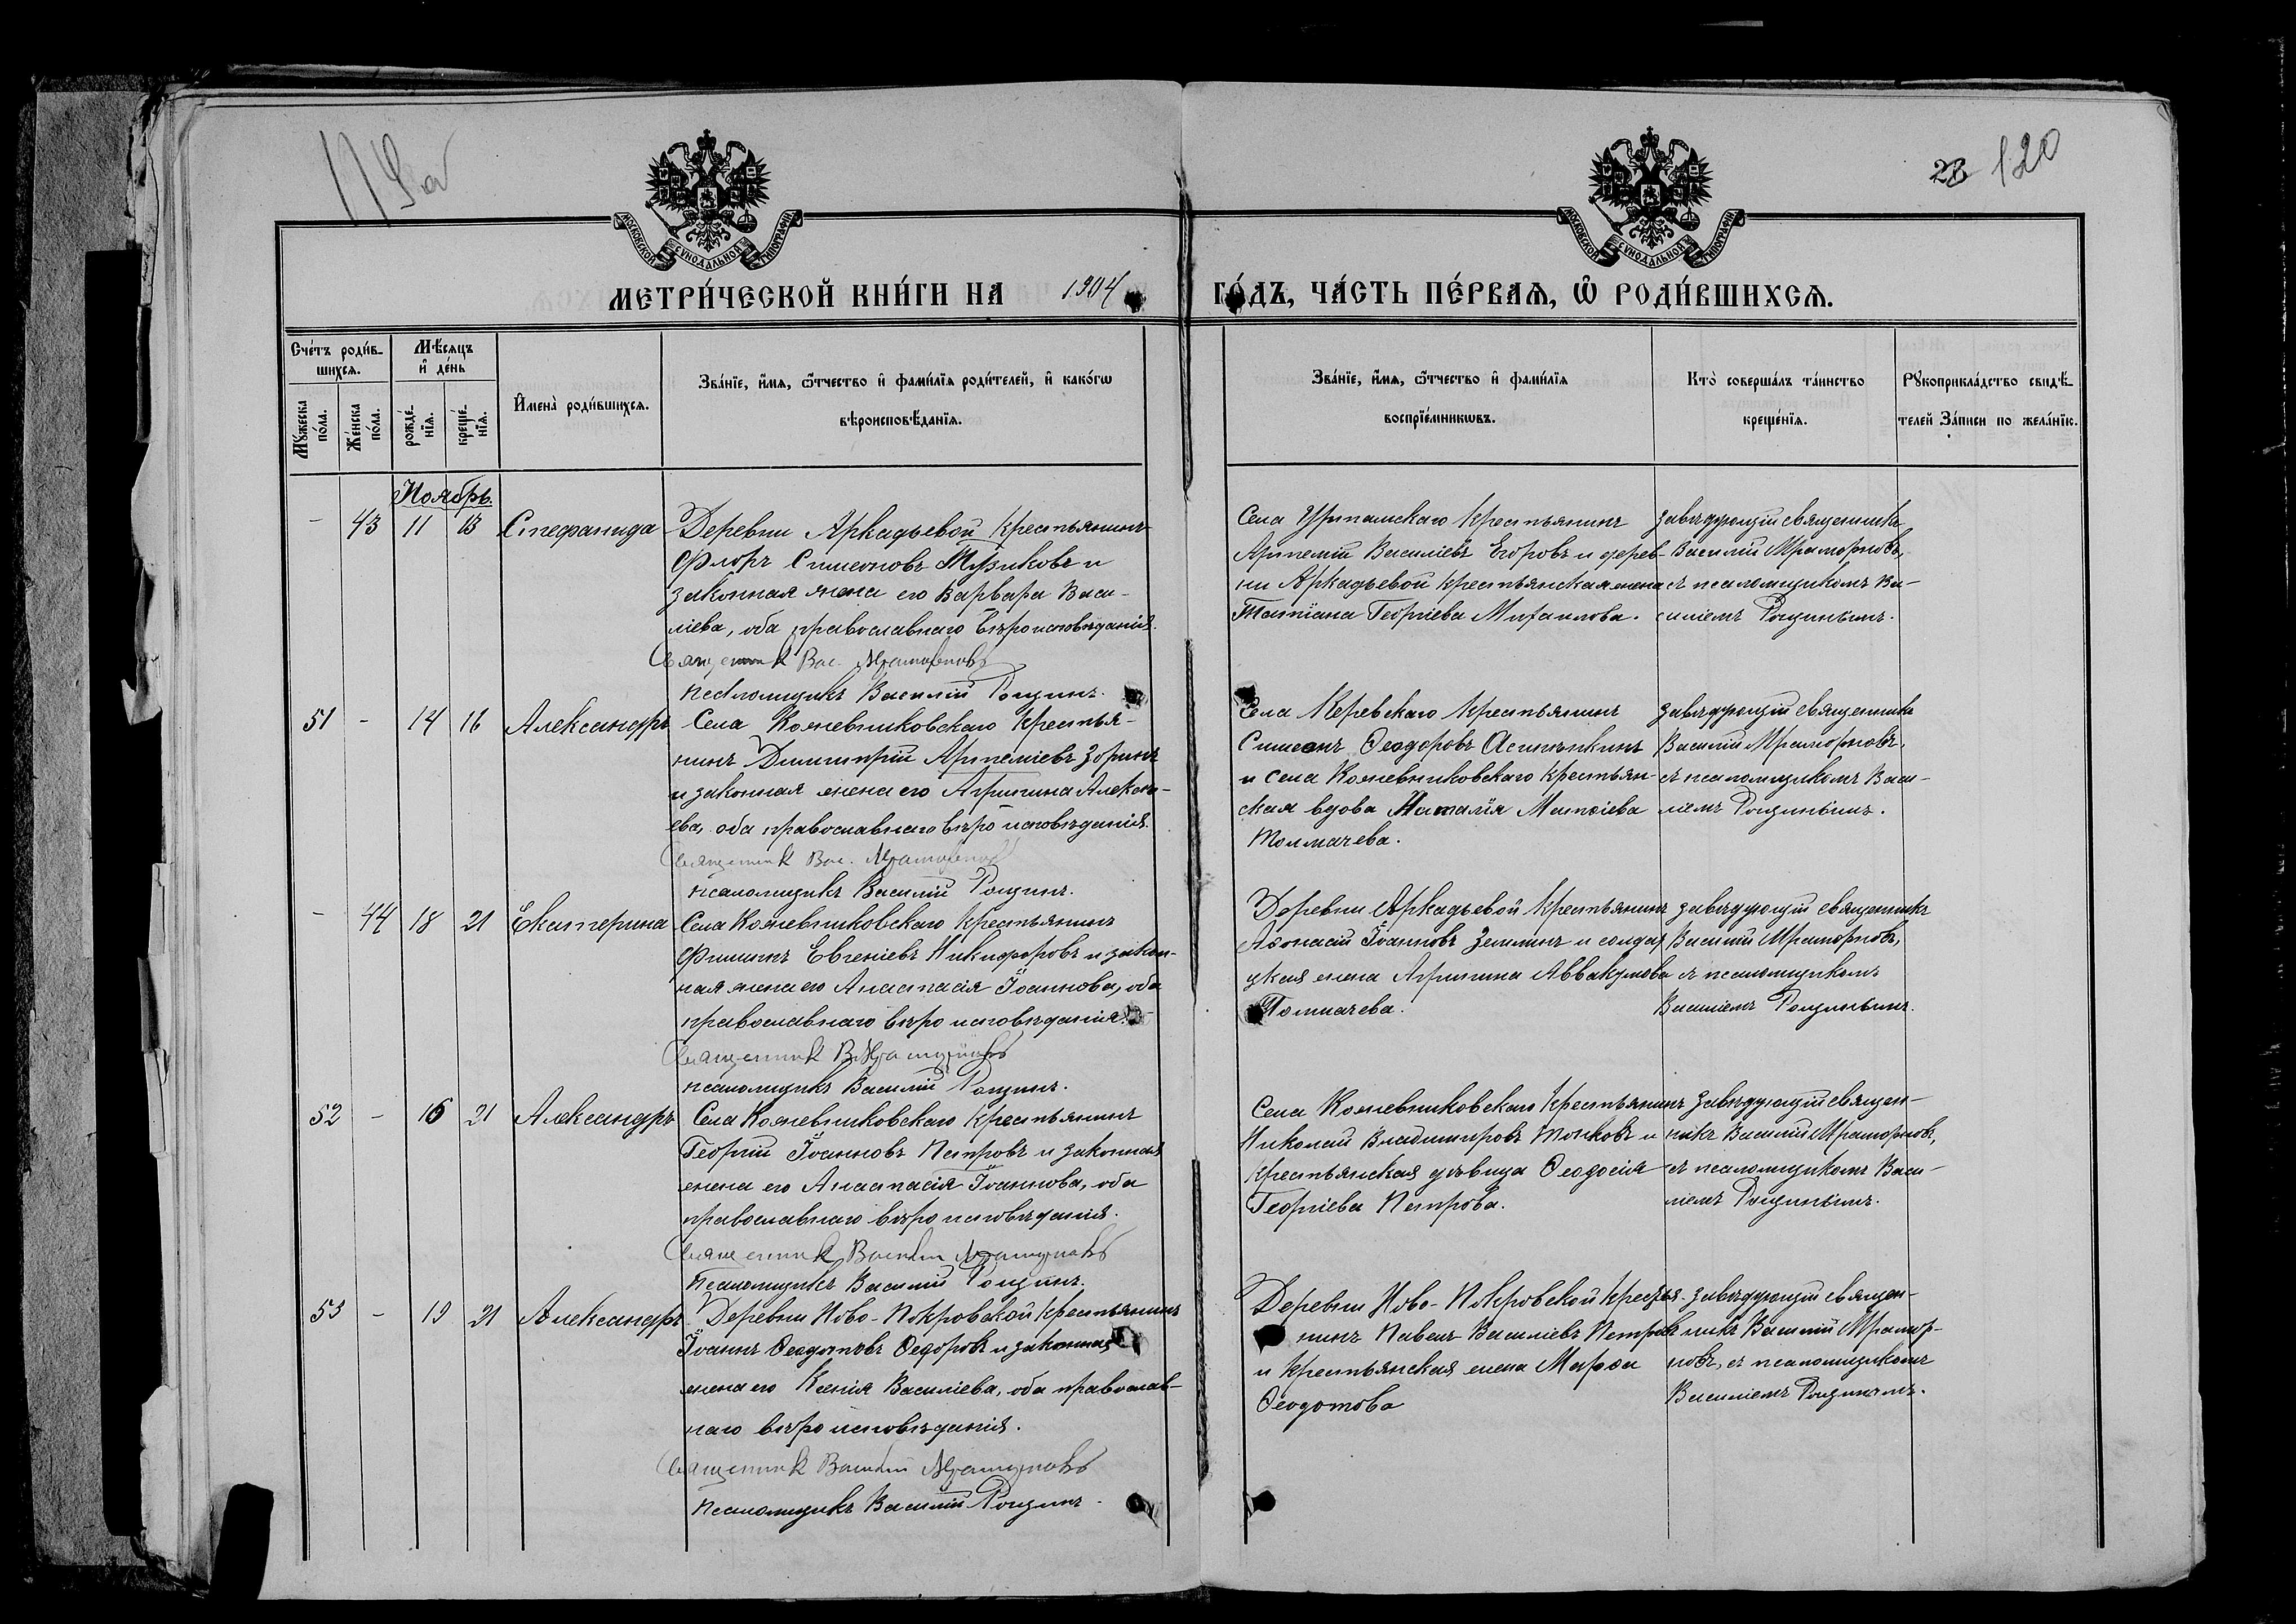 119а
28 120
МОСКОВСКОЙ СѴНОДАЛЬНОЙ ТИПОГРАФІИ
МОСКОВСКОЙ СѴНОДАЛЬНОЙ ТИПОГРАФІИ
МЕТРИ́ЧЕСКОЙ КНИ́ГИ НА 1904 ГО́ДЪ, ЧА́СТЬ ПЕ́РВАѦ, Ѡ҆ РОДИ́ВШИХСѦ.
Сче́тъ роди́в-
шихсѧ.
Мѣ́сѧцъ
и҆ де́нь
Мꙋ́жеска
по́ла.
Же́нска
по́ла.
рожде́-
нїѧ.
креще́-
нїѧ.
И҆мена̀ роди́вшихсѧ.
Зва́нїе, и҆́мѧ, ѻ҆́тчество и҆ фами́лїѧ роди́телей, и҆ како́гѡ
вѣроисповѣ́данїѧ.
Зва́нїе, и҆́мѧ, ѻ҆́тчество и҆ фами́лїѧ
воспрїе́мникѡвъ.
Кто̀ соверша́лъ та́инство
креще́нїѧ.
Рꙋкоприкла́дство свидѣ́-
телей за́писи по жела́нїю.
Ноябрь.
- 43 11 13 Стефанида
Деревни Аркадьевой крестьянинъ
Флоръ Симеоновъ Музиковъ и
законная жена его Варвара Васи-
ліева, оба православнаго вѣроисповѣданія.
Священникъ Вас. Мраморновъ
Псаломщикъ Василій Рощинъ.
Села Уртамскаго крестьянинъ
Артемій Василіевъ Егоровъ и дерев-
ни Аркадьевой крестьянская жена
Татіана Георгіева Михаилова.
завѣдующій священникъ
Василій Мраморновъ,
съ псаломщикомъ Ва-
силіемъ Рощинымъ.
51 - 14 16 Александръ
Села Кожевниковскаго крестья-
нинъ Димитрій Артеміевъ Зоринъ
и законная жена его Агриппина Алексі-
ева, оба православнаго вѣроисповѣданія.
Священникъ Вас. Мраморновъ
псаломщикъ Василій Рощинъ.
Села Керевскаго крестьянинъ
Симеонъ Ѳеодоровъ Асинкинъ
и села Кожевниковскаго крестьян-
ская вдова Наталія Матѳіева
Толмачева.
завѣдующій священникъ
Василій Мраморновъ,
съ псаломщикомъ Васи-
ліемъ Рощинымъ.
- 44 18 21 Екатерина
Села Кожевниковскаго крестьянинъ
Филиппъ Евгеніевъ Никифоровъ и закон-
ная жена его Анастасія Іоаннова, оба
православнаго вѣроисповѣданія.
Священникъ В. Мраморновъ
псаломщикъ Василій Рощинъ.
Деревни Аркадьевой крестьянинъ
Аѳонасій Іоанновъ Земминъ и солдат-
ская жена Агриппина Аввакумова
Толмачева.
завѣдующій священникъ
Василій Мраморновъ,
съ псаломщикомъ
Василіемъ Рощинымъ.
52 - 16 21 Александръ
Села Кожевниковскаго крестьянинъ
Георгій Іоанновъ Петровъ и законная
жена его Анастасія Іоаннова, оба
православнаго вѣроисповѣданія.
Священникъ Василій Мраморновъ
Псаломщикъ Василій Рощинъ.
Села Кожевниковскаго крестьянинъ
Николай Владиміровъ Толковъ и
крестьянская дѣвица Ѳеодосія
Георгіева Петрова.
завѣдующій священ-
никъ Василій Мраморновъ,
съ псаломщикомъ Васи-
ліемъ Рощинымъ.
53 - 19 21 Александръ
Деревни Ново-Покровской крестьянинъ
Іоаннъ Ѳеодотовъ Ѳедоровъ и законная
жена его Ксенія Василіева, оба православ-
наго вѣроисповѣданія.
Священникъ Василій Мраморновъ
Псаломщикъ Василій Рощинъ.
Деревни Ново-Покровской крестья-
нинъ Павелъ Василіевъ Петровъ
и крестьянская жена Марѳа
Ѳеодотова
завѣдующій священ-
никъ Василій Мрамор-
новъ, съ псаломщикомъ
Василіемъ Рощинымъ.